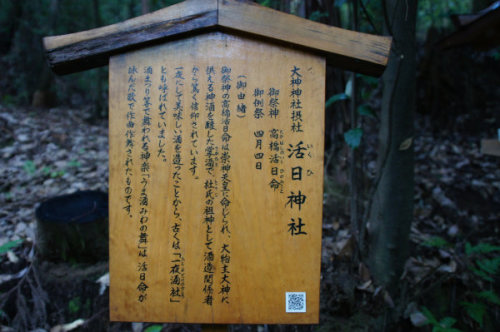 大神神社摂社 活日神社
いくひ
御祭神 高橋活日命
たかはしいくひのみこと
御例祭 四月四日
(御由緒)
御祭神の高橋活日命は崇神天皇に命じられ、大物主大神に
供える神酒を醸した掌酒で、杜氏の祖神として酒造関係者
から篤く信仰されています。
一夜にして美味しい酒を造ったことから、古くは「一夜酒社」
とも呼ばれていました。
酒まつり等で舞われる神楽「うま酒みわの舞」は 活日命が
詠んだ歌で作曲作舞されたものです。